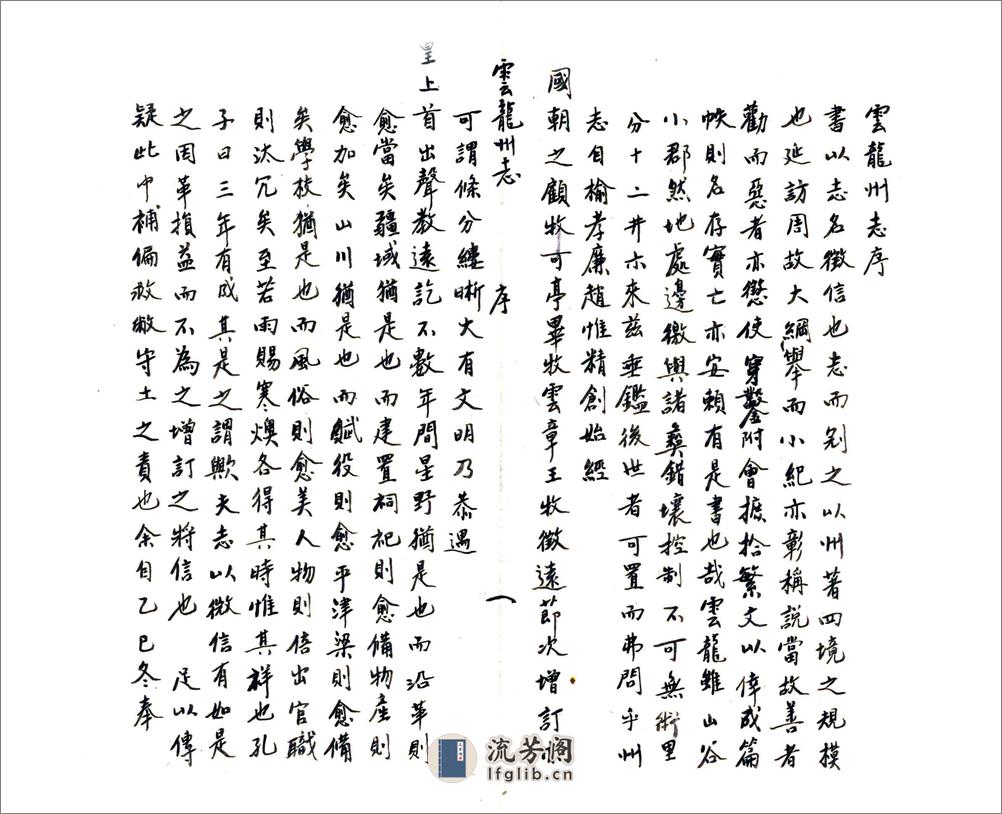 雲龍州志序
書以志名徵信也志而別之以州著四境之規模
也延訪周故大綱舉而小紀亦彰稱說當故善者
勸而惡者亦懲使穿鑿附會摭拾繁文以偉成篇
帙則名存實亡亦安賴有是書也哉雲龍雖山谷
小郡然地處邊徼與諸彝錯壤控制不可無術里
分十二井六來茲垂鑑後世者可置而弗問乎州
志自榆孝廉趙惟精創始經
國朝之顧牧可亭畢牧雲章王牧徵遠節次增訂
雲龍州志 序 一
可謂條分縷晰大有文明乃恭遇
皇上首出聲教遠訖不數年間星野猶是也而沿革則
愈當矣疆域猶是也而建置祠祀則愈備物產則
愈加矣山川猶是也而賦役則愈平津梁則愈備
矣學校猶是也而風俗則愈美人物則倍出官職
則汰冗矣至若雨賜寒燠各得其時惟其祥也孔
子曰三年有成其是之謂歟夫志以徵信有如是
之因革損益而不為之增訂之將信也 足以傳
疑此中補偏救敝守土之責也余自乙巳冬奉
流芳閣
lfglib.cn